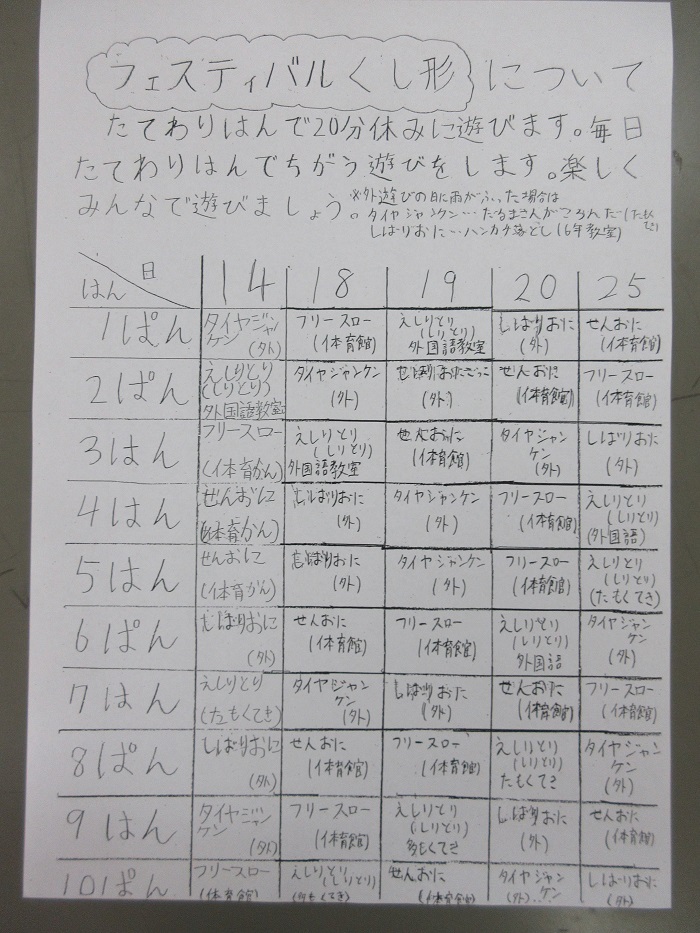 フェスティバルくし形 について
たてわりはんで20分休みに遊びます。毎日
たてわりはんでちがう遊びをします。楽しく
みんなで遊びましょう。
※外遊びの日に雨がふった場合は
タイヤジャンケン…だるまさんがころんだ
しばりおに…ハンカチ落とし(6年教室)
日 はん 14 18 19 20 25
1ぱん タイヤジャンケン(外) フリースロー(体育館) えしりとり(しりとり)外国語教室 しばりおに(外) せんおに(体育館)
2はん えしりとり(しりとり)外国語教室 タイヤジャンケン(外) (外) せんおに(体育館) フリースロー(体育館)
3はん フリースロー(体育かん) えしりとり(しりとり)外国語教室 せんおに(体育館) タイヤジャンケン(外) しばりおに(外)
4はん せんおに(体育かん) しばりおに(外) タイヤジャンケン(外) フリースロー(体育館) えしりとり(しりとり)(外国語)
5はん せんおに(体育かん) しばりおに(外) タイヤジャンケン(外) フリースロー(体育館) えしりとり(しりとり)(たもくてき)
6ぱん しばりおに(外) せんおに(体育館) フリースロー(体育館) えしりとり(しりとり)外国語 タイヤジャンケン(外)
7はん えしりとり(たもくてき) タイヤジャンケン(外) しばりおに(外) せんおに(体育館) フリースロー(体育館)
8ぱん しばりおに(外) せんおに(体育館) フリースロー(体育館) えしりとり(しりとり)たもくてき タイヤジャンケン(外)
9はん タイヤジャンケン(外) フリースロー(体育館) えしりとり(しりとり)多もくてき しばりおに(外) せんおに(体育館)
10ぱん フリースロー(体育館) えしりとり(しりとり)(多もくてき) せんおに(体育館) タイヤジャンケン(外) しばりおに(外)